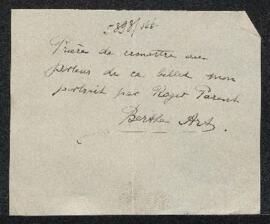 5898/166
Prière de remettre au
porteur de ce billet mon
portrait par Roger Parent
Berthe Art.